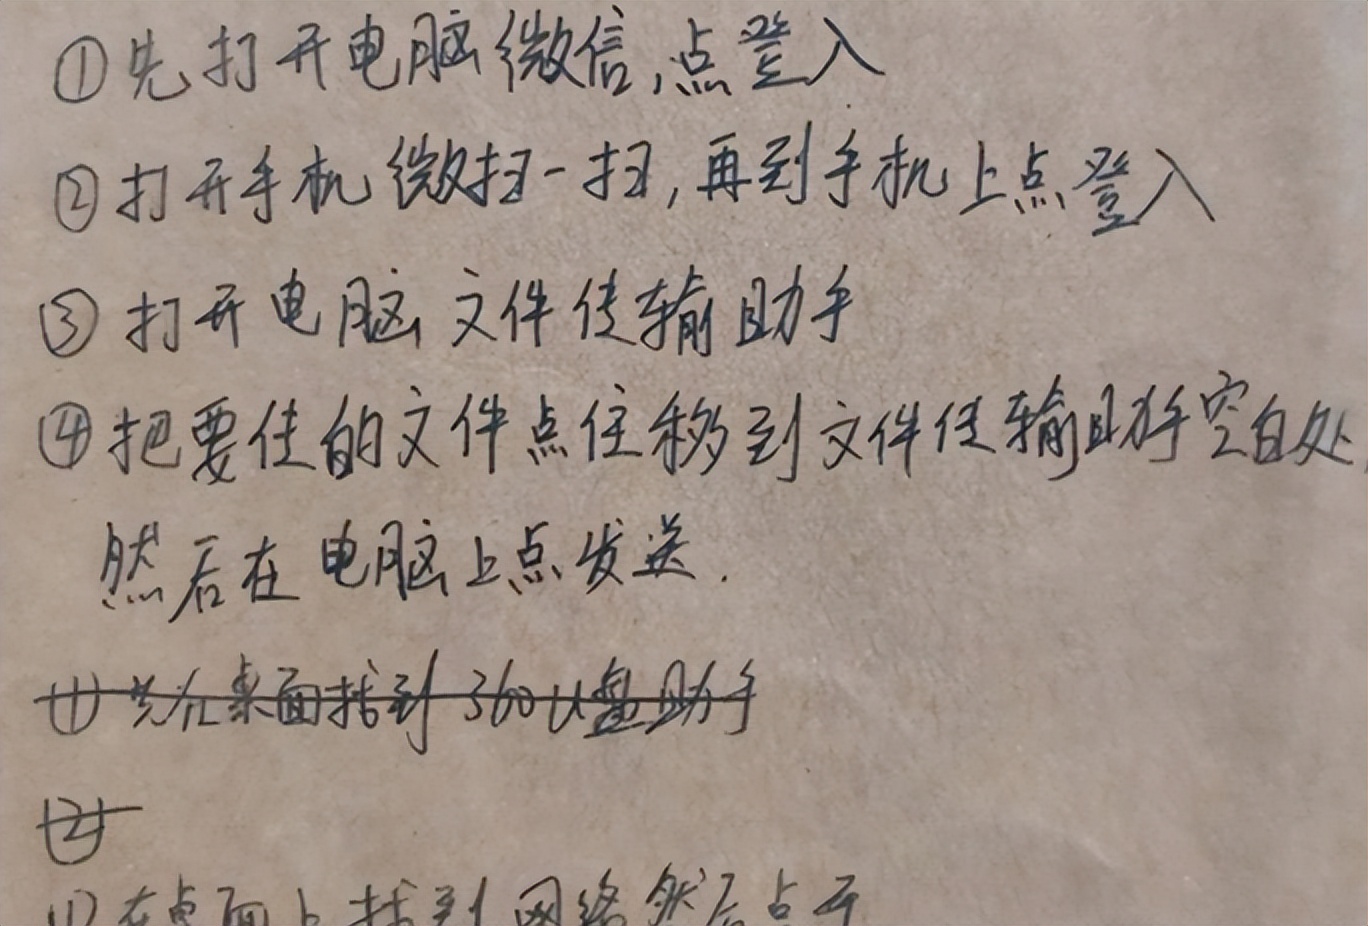 ①先打开电脑微信,点登入
②打开手机微扫一扫,再到手机上点登入
③打开电脑文件传输助手
④把要传的文件点住移到文件传输助手空白处,
然后在电脑上点发送.
① 先在桌面找到360U盘助手
②
① 在桌面上找到网络然后点开